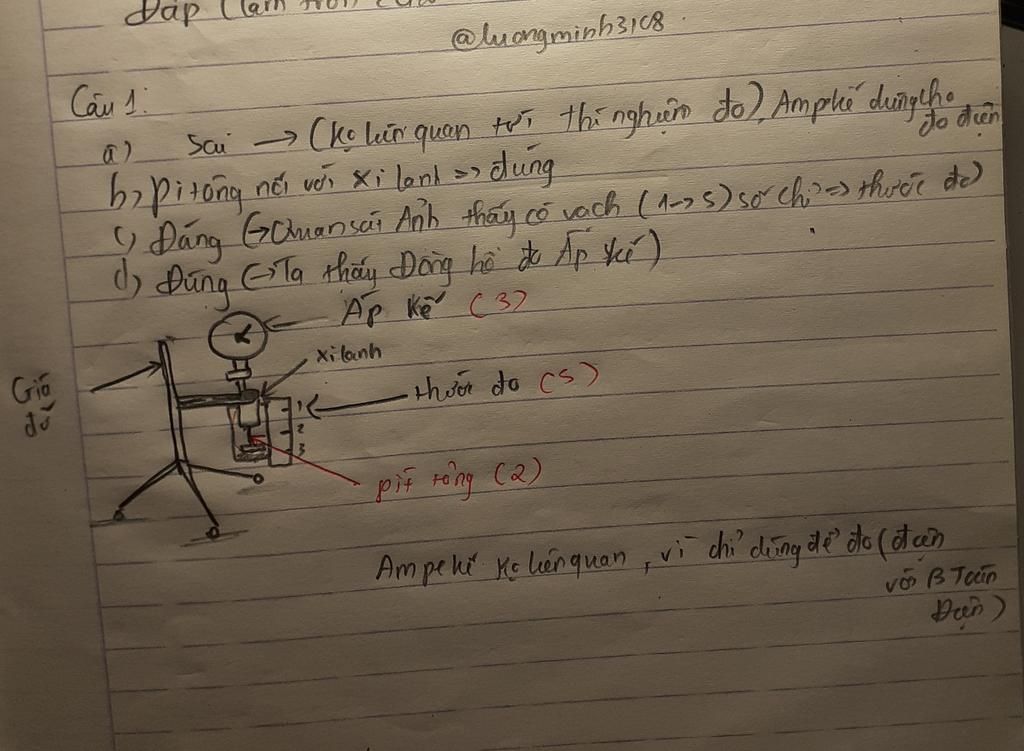 Đáp (làm tròn
@luongminh3108
Câu 1:
a) Sai → (Ko liên quan tới thí nghiệm đo), Ampkế dùng cho
đo điện
b, pi tông nối với xi lanh => đúng
c) Đúng (→ Quan sát Ảnh thấy có vạch (1→5) số chỉ => thước đo)
d) Đúng (→ Ta thấy Đồng hồ đo Áp kế)
Áp kế (3)
xi lanh
Giá
đỡ
thước đo (5)
1
2
3
pít tông (2)
Ampe kế Ko liên quan, vì chỉ dùng để đo (điện
với B Toán
Điện)